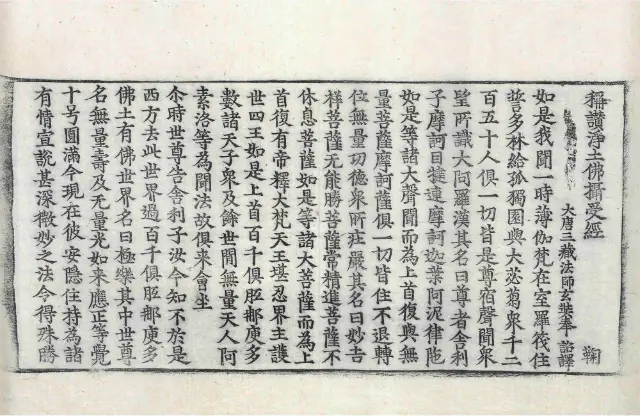 稱讚淨土佛攝受經 鞠
大唐三藏法師玄奘奉 詔譯
如是我聞一時薄伽梵在室羅筏住
誓多林給孤獨園與大苾芻衆千二
百五十人俱一切皆是尊宿聲聞衆
望所識大阿羅漢其名曰尊者舍利
子摩訶目揵連摩訶迦葉阿泥律陁
如是等諸大聲聞而為上首復與無
量菩薩摩訶薩俱一切皆住不退轉
位無量功德衆所莊嚴其名曰妙吉
祥菩薩无能勝菩薩常精進菩薩不
休息菩薩如是等諸大菩薩而為上
首復有帝釋大梵天王堪忍界主護
世四王如是上首百千俱胝那庾多
數諸天子衆及餘世間無量天人阿
素洛等為聞法故俱來會坐
尒時世尊告舍利子汝今知不於是
西方去此世界過百千俱胝那庾多
佛土有佛世界名曰極樂其中世尊
名無量壽及无量光如來應正等覺
十号圓滿今現在彼安隱住持為諸
有情宣說甚深微妙之法令得殊勝